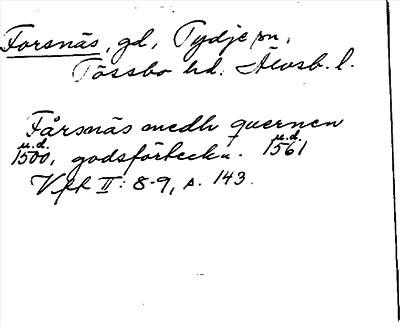 Forsnäs, gd, Tydje sn,
Tössbo hd. Älvsb. l.
Fårsnäs medh quernen
u.d. 1500, godsförteckn. u.d. 1561
Vft II: 8-9, s. 143.